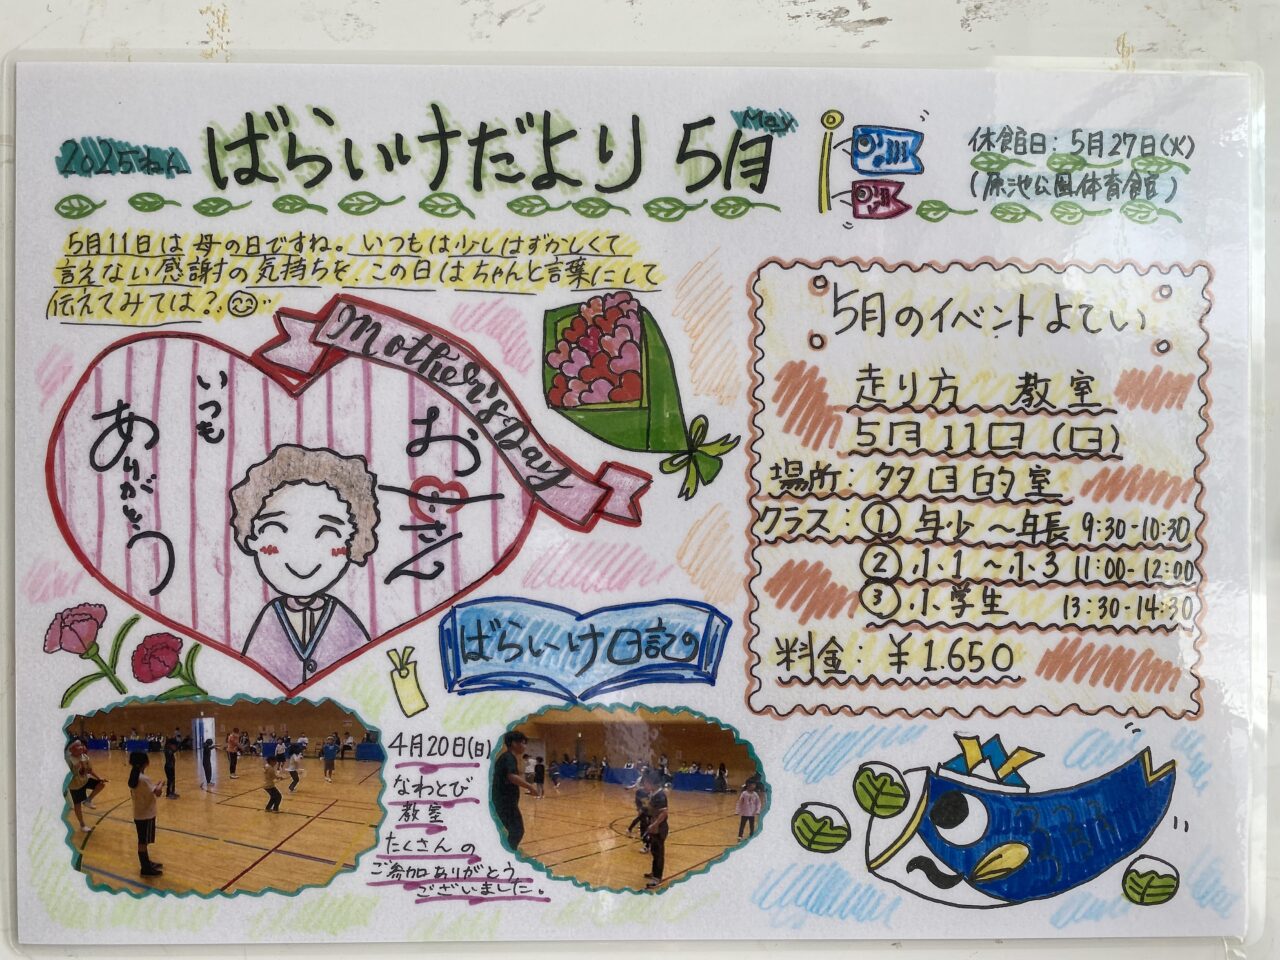 2025ねん
ばらいけだより 5月
May
休館日: 5月27日(火)
(原池公園体育館)
5月11日は母の日ですね。いつもは少しはずかしくて
言えない感謝の気持ちを、この日はちゃんと言葉にして
伝えてみては?
Mother's Day
お さん
いつも
ありがとう
5月のイベントよてい
走り方 教室
5月11日(日)
場所: 多目的室
クラス: ① 年少~年長 9:30-10:30
② 小1~小3 11:00-12:00
③ 小学生 13:30-14:30
料金: ¥1.650
ばらいけ日記
4月20日(日)
なわとび
教室
たくさんの
ご参加ありがとう
ございました。